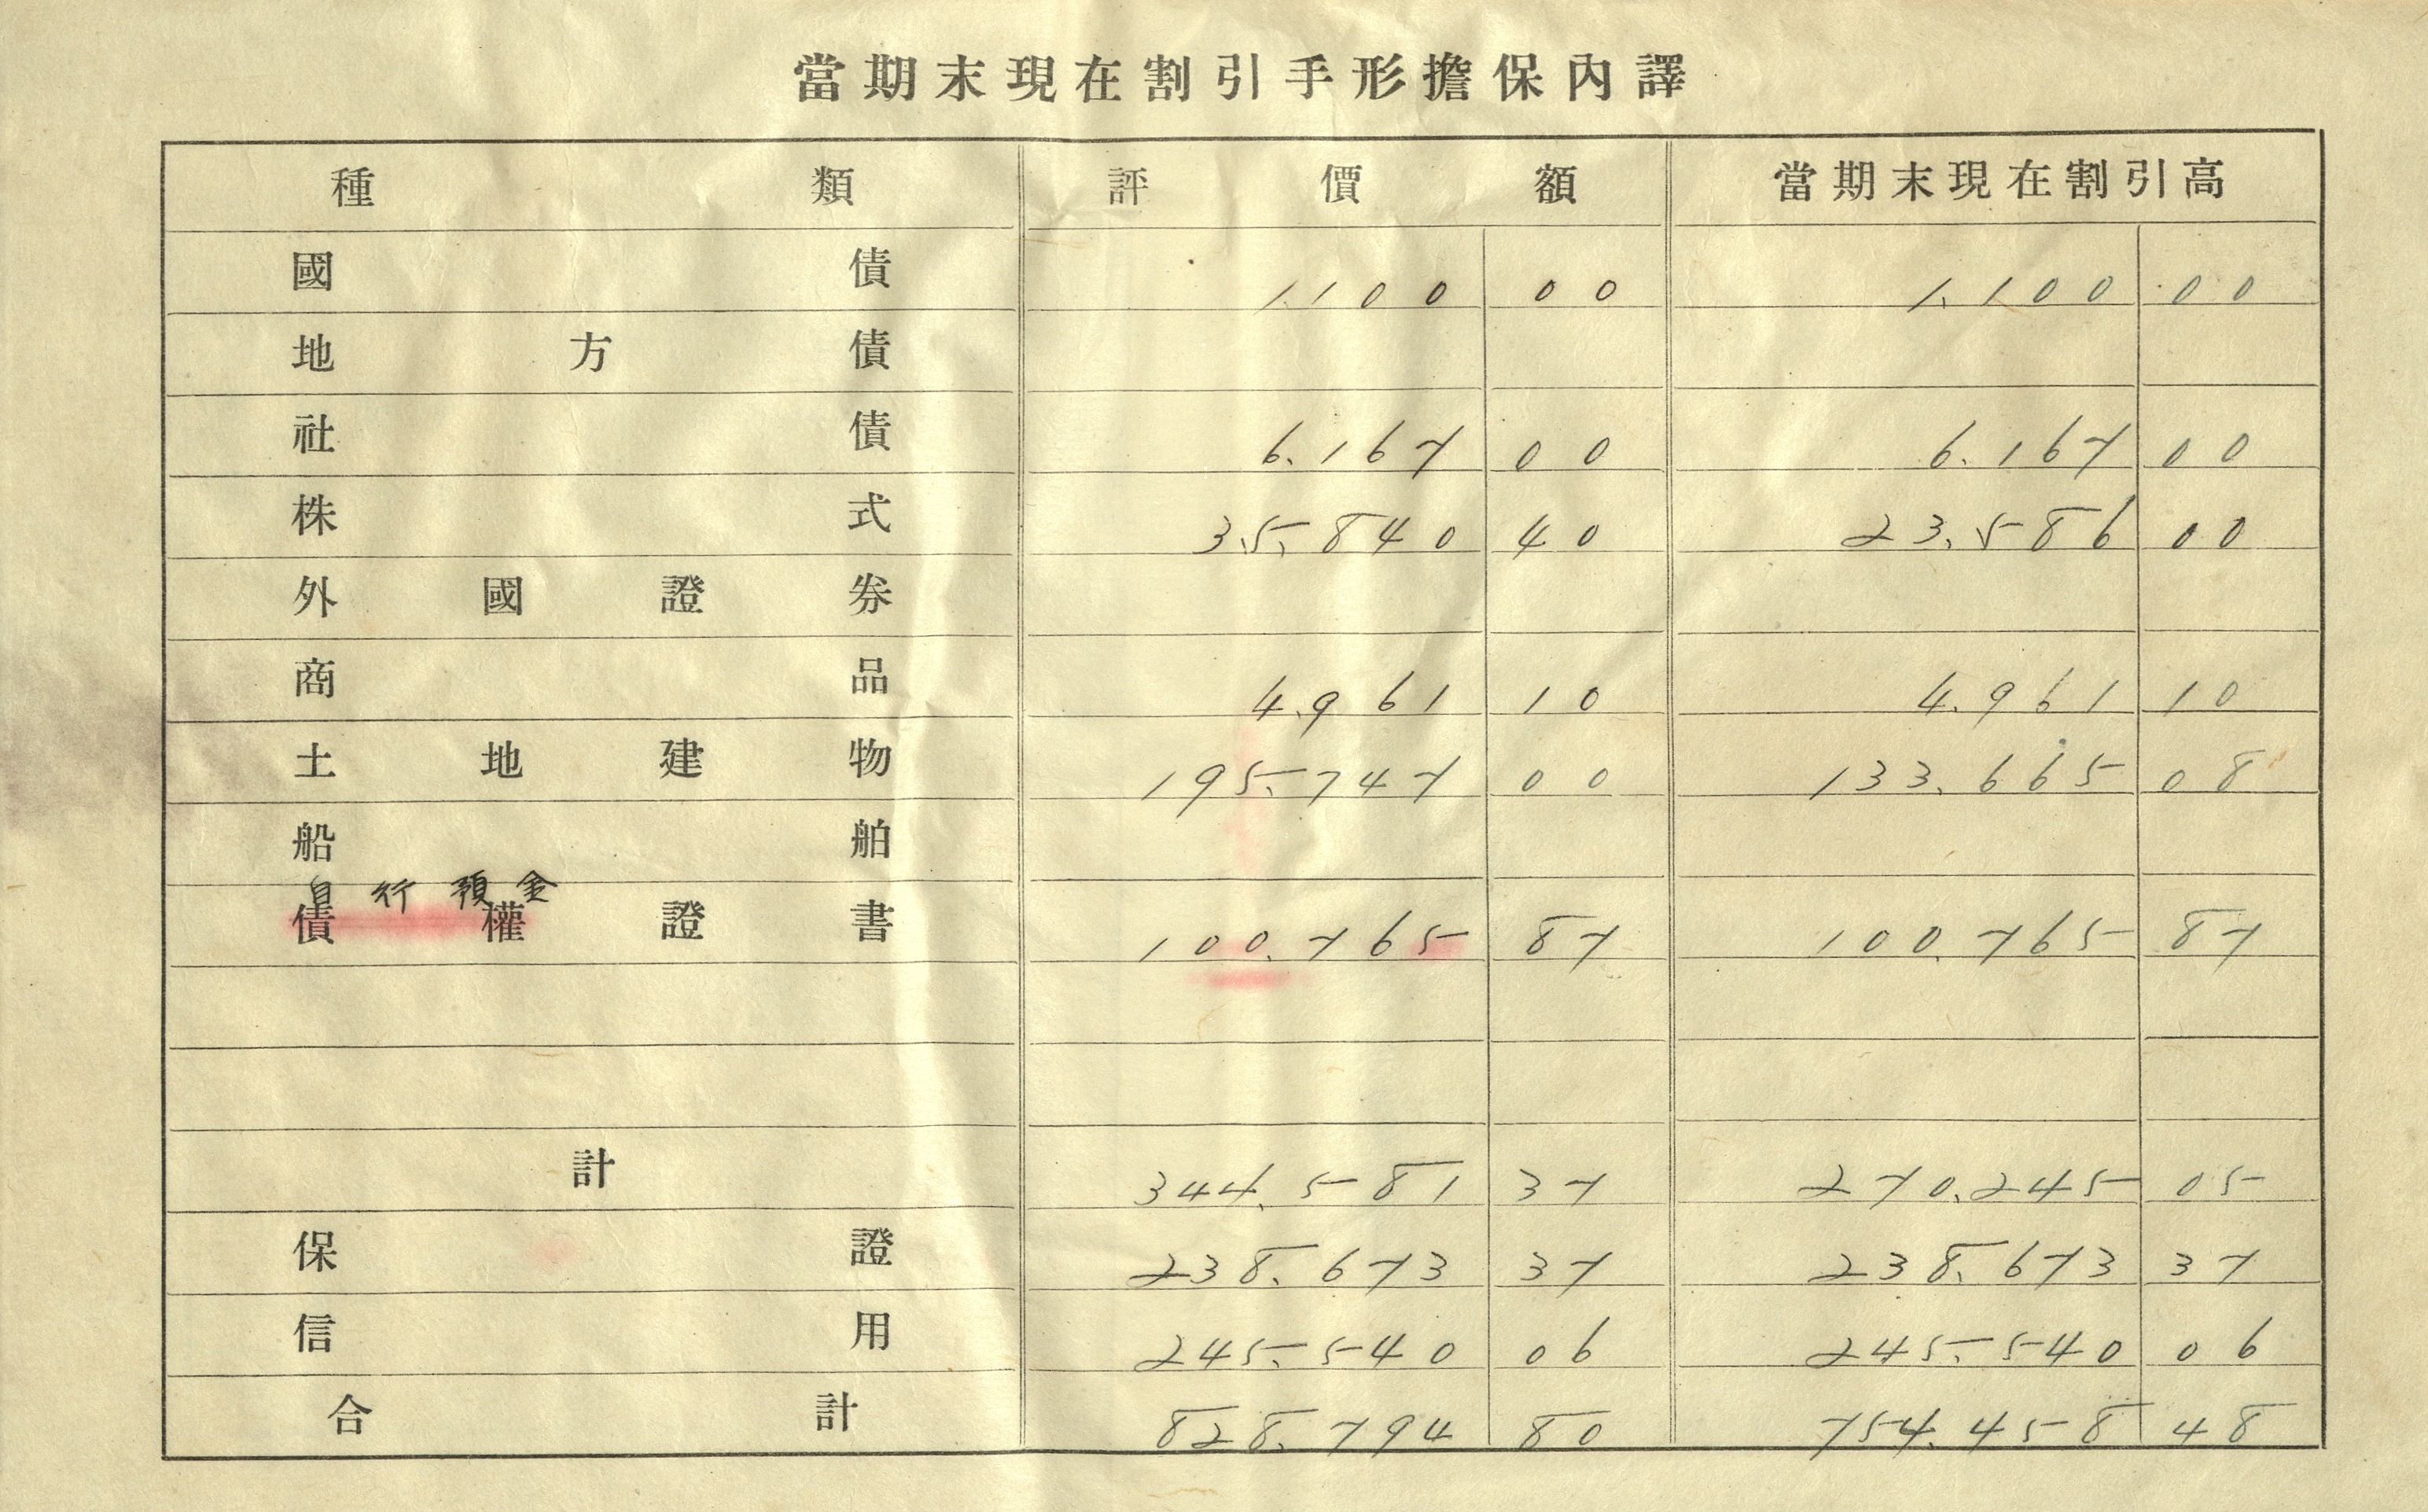 當期末現在割引手形擔保內譯
種類 評價額 當期末現在割引高
國債 1.100 00 1.100 00
地方債
社債 6.167 00 6.167 00
株式 35.840 40 23.586 00
外國證券
商品 4.961 10 4.961 10
土地建物 195.747 00 133.665 08
船舶
自行預金
債權證書 100.765 87 100.765 87
計 344.581 37 270.245 05
保證 238.673 37 238.673 37
信用 245.540 06 245.540 06
合計 828.794 80 754.458 48